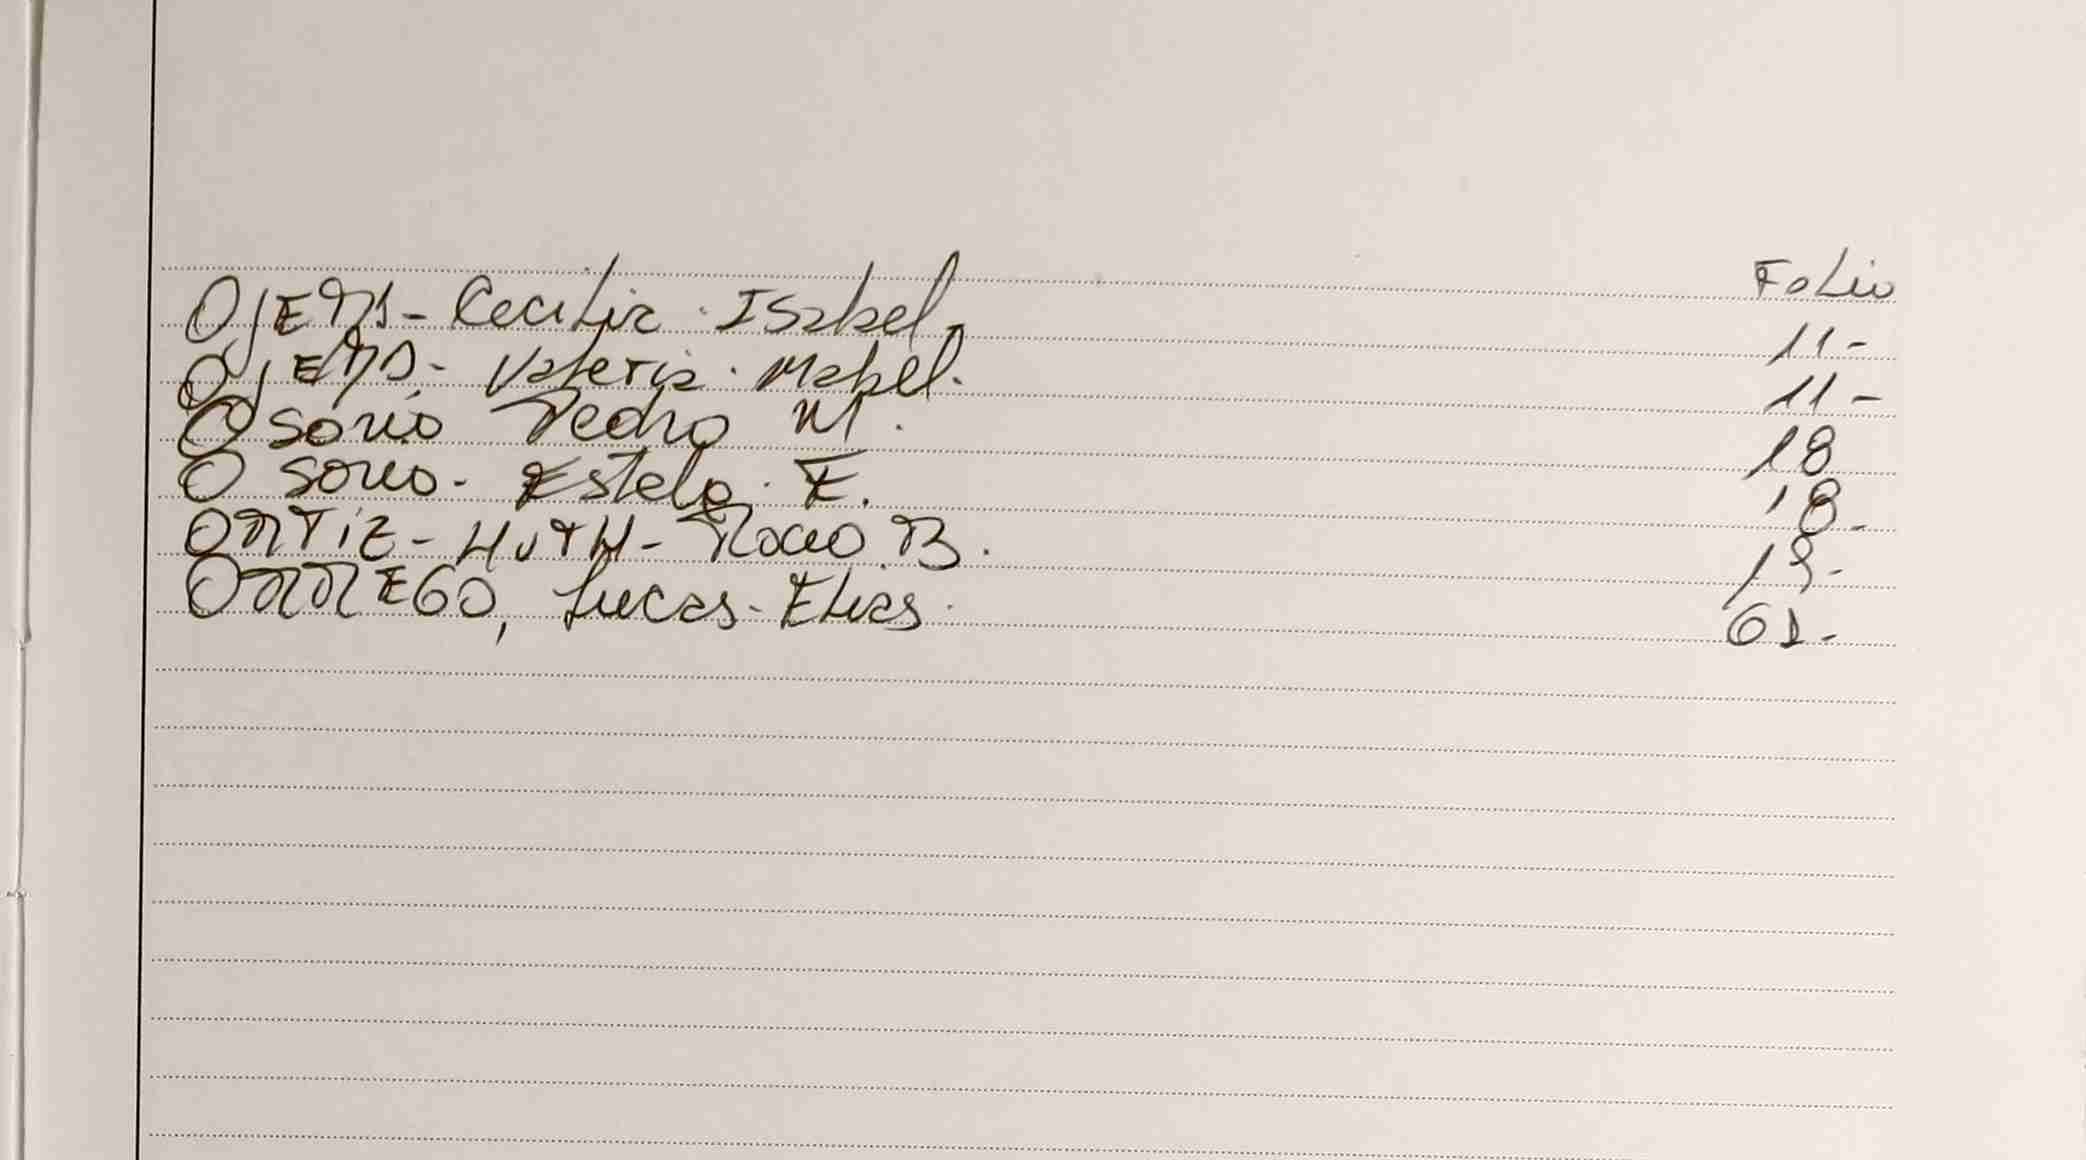 Folio
OJEDA - Cecilia Isabel. 11-
OJEDA - Valeria Mabel. 11-
Osorio Pedro M. 18
Osorio - Estela E. 18-
ORTIZ - HUTH - Rocio B. 19-
ORREGO, Lucas - Elias. 61-